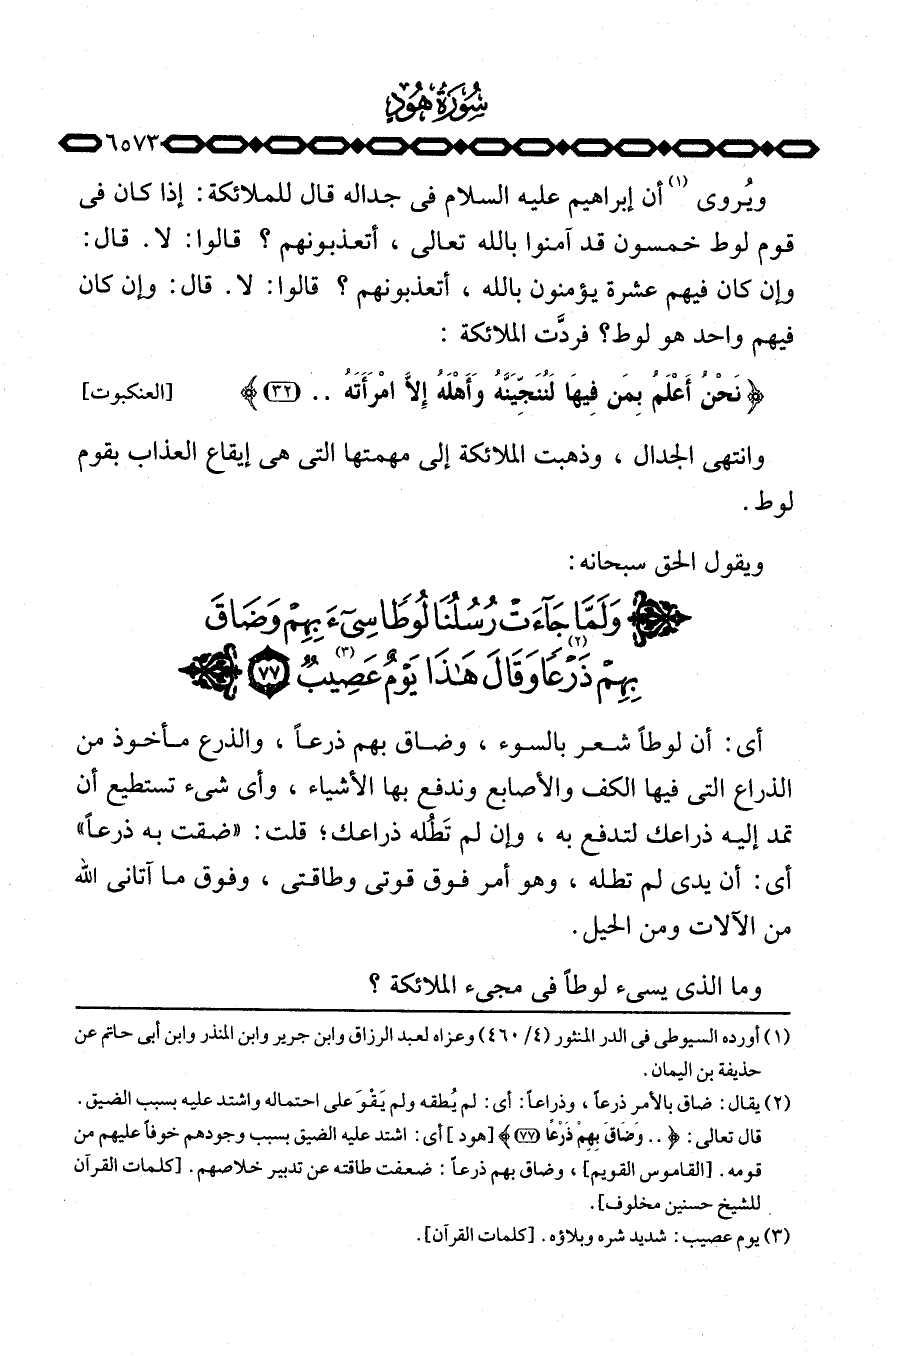 سُورَةُ هُودٍ
٦٥٧٣
ويُروى (١) أن إبراهيم عليه السلام فى جداله قال للملائكة: إذا كان فى
قوم لوط خمسون قد آمنوا بالله تعالى ، أتعذبونهم ؟ قالوا: لا. قال:
وإن كان فيهم عشرة يؤمنون بالله ، أتعذبونهم ؟ قالوا: لا. قال: وإن كان
فيهم واحد هو لوط؟ فردَّت الملائكة :
﴿ نَحْنُ أَعْلَمُ بِمَن فِيهَا لَنُنَجِّيَنَّهُ وَأَهْلَهُ إِلاَّ امْرَأَتَهُ .. (٣٢) ﴾ [العنكبوت]
وانتهى الجدال ، وذهبت الملائكة إلى مهمتها التى هى إيقاع العذاب بقوم
لوط .
ويقول الحق سبحانه:
﴿ وَلَمَّا جَآءَتْ رُسُلُنَا لُوطًا سِىٓءَ بِهِمْ وَضَاقَ
بِهِمْ ذَرْعًا (٢) وَقَالَ هَٰذَا يَوْمٌ عَصِيبٌ (٣) ٧٧ ﴾
أى: أن لوطاً شعر بالسوء ، وضاق بهم ذرعاً ، والذرع مأخوذ من
الذراع التى فيها الكف والأصابع وندفع بها الأشياء ، وأى شىء تستطيع أن
تمد إليه ذراعك لتدفع به ، وإن لم تَطُله ذراعك؛ قلت: «ضقت به ذرعاً»
أى: أن يدى لم تطله ، وهو أمر فوق قوتى وطاقتى ، وفوق ما آتانى الله
من الآلات ومن الحيل.
وما الذى يسىء لوطاً فى مجىء الملائكة ؟
(١) أورده السيوطى فى الدر المنثور (٤/ ٤٦٠) وعزاه لعبد الرزاق وابن جرير وابن المنذر وابن أبى حاتم عن
حذيفة بن اليمان .
(٢) يقال: ضاق بالأمر ذرعاً ، وذراعاً: أى: لم يُطقه ولم يَقْوَ على احتماله واشتد عليه بسبب الضيق .
قال تعالى: ﴿ .. وَضَاقَ بِهِمْ ذَرْعًا (٧٧) ﴾ [هود ] أى: اشتد عليه الضيق بسبب وجودهم خوفاً عليهم من
قومه . [القاموس القويم] ، وضاق بهم ذرعاً : ضعفت طاقته عن تدبير خلاصهم . [كلمات القرآن
للشيخ حسنين مخلوف].
(٣) يوم عصيب: شديد شره وبلاؤه . [كلمات القرآن].